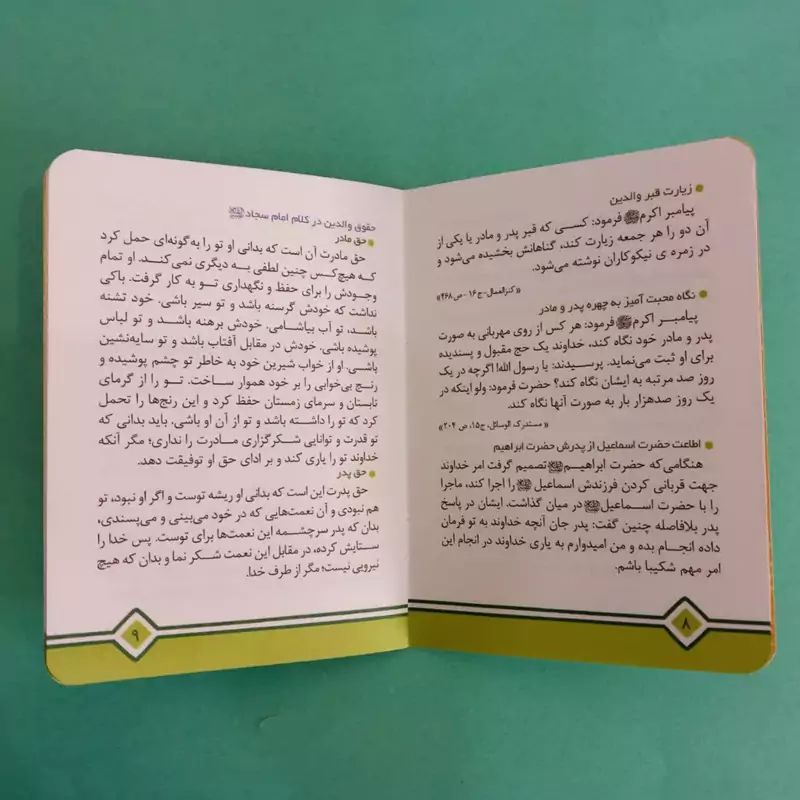 زیارت قبر والدین
پیامبر اکرمﷺ فرمود: کسی که قبر پدر و مادر یا یکی از
آن دو را هر جمعه زیارت کند، گناهانش بخشیده می‌شود و
در زمره ی نیکوکاران نوشته می‌شود.
«کنزالعمال-ج۱۶ - ص۴۶۸»
نگاه محبت آمیز به چهره پدر و مادر
پیامبر اکرمﷺ فرمود: هر کس از روی مهربانی به صورت
پدر و مادر خود نگاه کند، خداوند یک حج مقبول و پسندیده
برای او ثبت می‌نماید. پرسیدند: یا رسول الله! اگرچه در یک
روز صد مرتبه به ایشان نگاه کند؟ حضرت فرمود: ولو اینکه در
یک روز صدهزار بار به صورت آنها نگاه کند.
«مستدرک الوسائل، ج۱۵، ص ۲۰۴»
اطاعت حضرت اسماعیل از پدرش حضرت ابراهیم
هنگامی‌که حضرت ابراهیم تصمیم گرفت امر خداوند
جهت قربانی کردن فرزندش اسماعیل را اجرا کند، ماجرا
را با حضرت اسماعیل در میان گذاشت. ایشان در پاسخ
پدر بلافاصله چنین گفت: پدر جان آنچه خداوند به تو فرمان
داده انجام بده و من امیدوارم به یاری خداوند در انجام این
امر مهم شکیبا باشم.
۸
حقوق والدین در کلام امام سجاد
حق مادر
حق مادرت آن است که بدانی او تو را به‌گونه‌ای حمل کرد
که هیچ‌کس چنین لطفی به دیگری نمی‌کند. او تمام
وجودش را برای حفظ و نگهداری تو به کار گرفت. باکی
نداشت که خودش گرسنه باشد و تو سیر باشی. خود تشنه
باشد، تو آب بیاشامی. خودش برهنه باشد و تو لباس
پوشیده باشی. خودش در مقابل آفتاب باشد و تو سایه‌نشین
باشی. او از خواب شیرین خود به خاطر تو چشم پوشیده و
رنج بی‌خوابی را بر خود هموار ساخت. تو را از گرمای
تابستان و سرمای زمستان حفظ کرد و این رنج‌ها را تحمل
کرد که تو را داشته باشد و تو از آن او باشی. باید بدانی که
تو قدرت و توانایی شکرگزاری مادرت را نداری؛ مگر آنکه
خداوند تو را یاری کند و بر ادای حق او توفیقت دهد.
حق پدر
حق پدرت این است که بدانی او ریشه توست و اگر او نبود، تو
هم نبودی و آن نعمت‌هایی که در خود می‌بینی و می‌پسندی،
بدان که پدر سرچشمه این نعمت‌ها برای توست. پس خدا را
ستایش کرده، در مقابل این نعمت شکر نما و بدان که هیچ
نیرویی نیست؛ مگر از طرف خدا.
۹